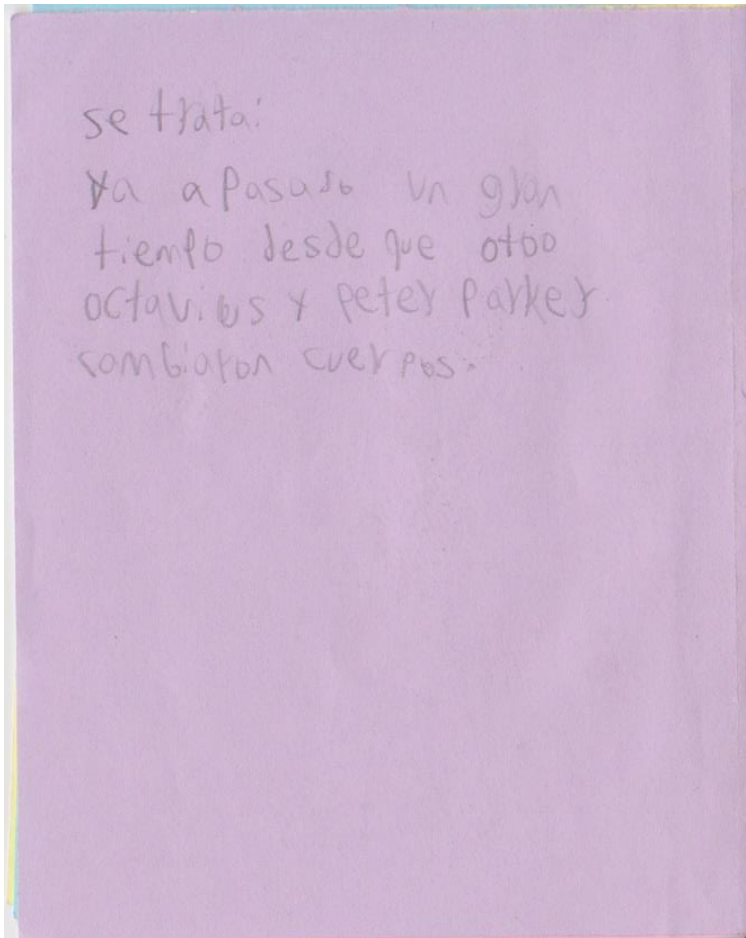 se trata:
ya a pasado un gran
tiempo desde que otoo
octavius y peter parker
cambiaron cuerpos.